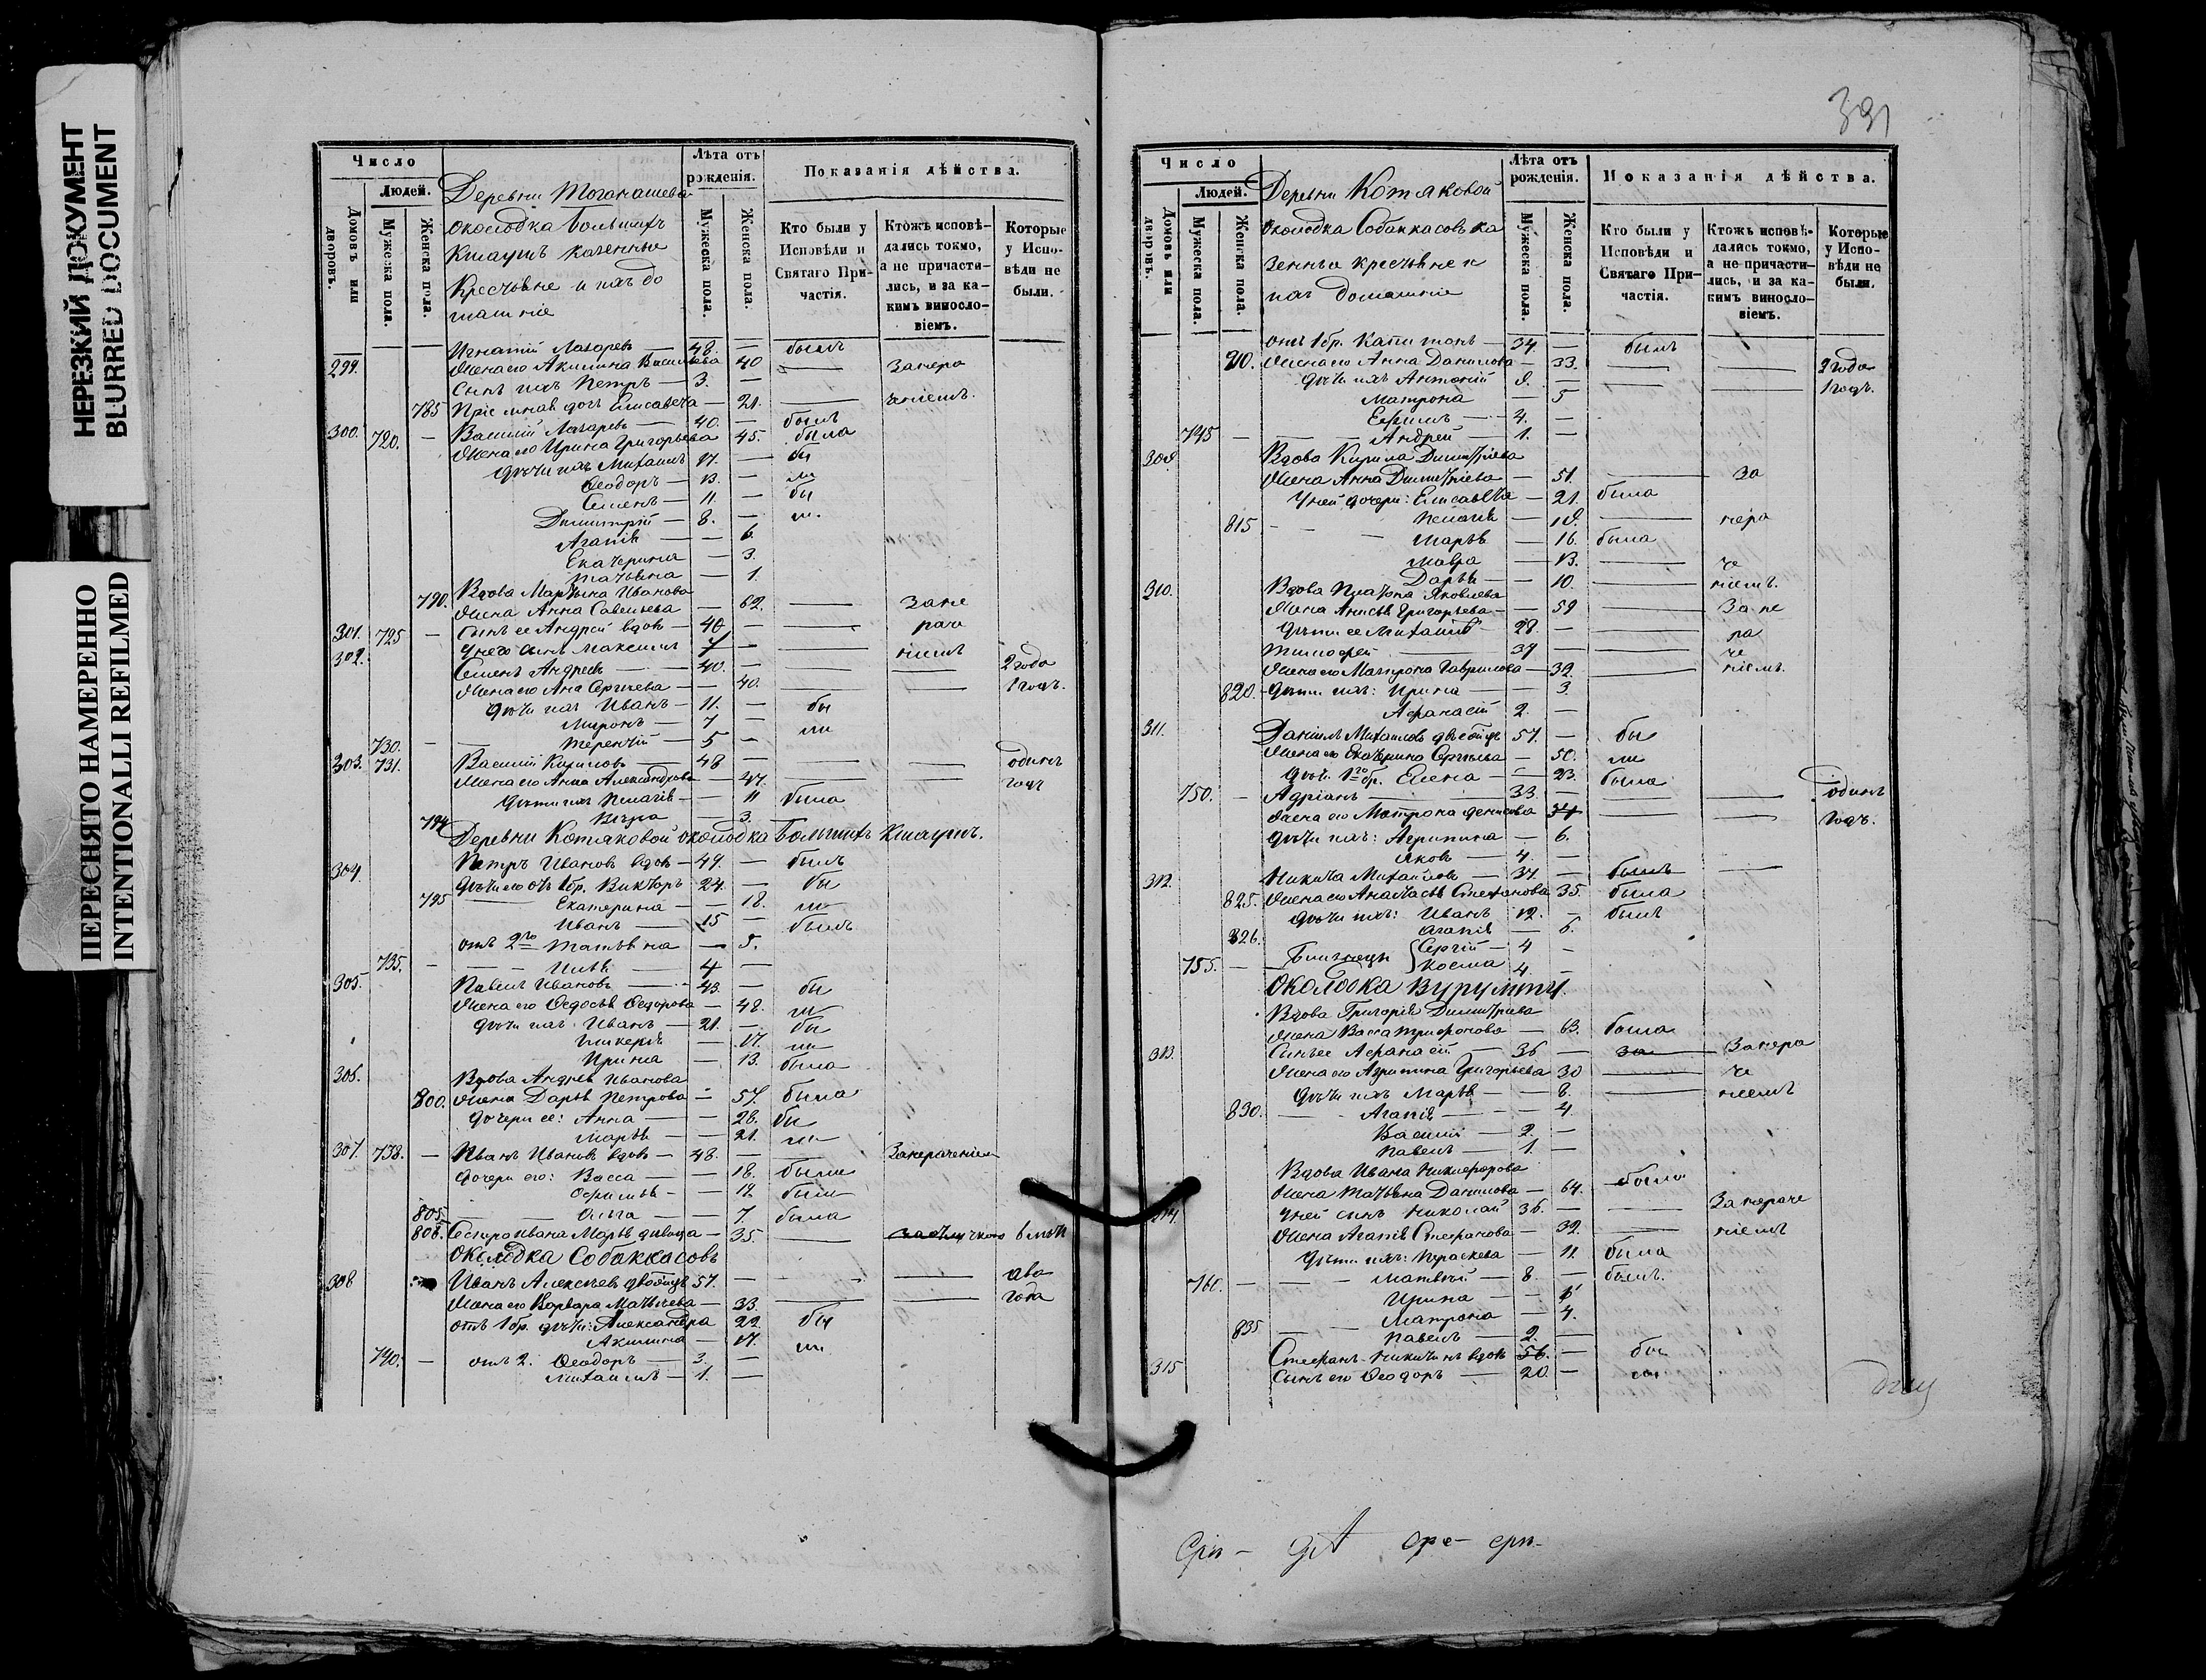 НЕРЕЗКИЙ ДОКУМЕНТ
BLURRED DOCUMENT
ПЕРЕСНЯТО НАМЕРЕННО
INTENTIONALLI REFILMED
Число
Людей.
Домовъ или дворовъ.
Мужеска пола.
Женска пола.
Деревни Тоганашева
околодка большихъ
Кшаушъ казенные
Крестьяне и ихъ до
машніе
Лѣта отъ рожденія.
Мужеска пола.
Женска пола.
Показанія дѣйства.
Кто были у Исповѣди и Святаго Причастія.
Ктожъ исповѣдались токмо, а не причастились, и за какимъ винословіемъ.
Которые у Исповѣди не были.
Игнатій Лазаревъ — 48. — былъ
299. Жена его Акилина Васильева 40 — Занера
Сынъ ихъ Петръ — 3. —
785 Пріемная дочь Елисавета — 21. — ченіемъ.
300. 720. — Василій Лазаревъ — 40. — былъ
Жена его Ирина Григорьева 45. была
Дѣти ихъ Михаилъ 17. — бы
Ѳеодоръ — 13. — ли
Семенъ — 11. — бы
Димитрій — 8. — ли.
Агапія — — 6.
Екатерина — 3.
Татьяна — 1.
Вдова Мартына Иванова
790. Жена Анна Савельева — 62. — Зане
301. 725 — Сынъ ее Андрей вдов — 40 — — раче
У него сынъ Максимъ 7 — — ніемъ
302. Семенъ Андреевъ — 40. — 2 года
Жена его Ана Сергѣева — 40. — — 1 годъ.
Дѣти ихъ Иванъ — 11. — бы
Миронъ — 7 — ли
730. — Терентій — 5 —
303. 731. Василій Кириловъ — 48 — — — одинъ
Жена его Анна Александрова — 47. — — годъ
Дѣти ихъ Пелагія — — 11 была
794 Вѣра — 3. —
Деревни Котяковой околодка Большихъ Кшаушъ.
304. Петръ Ивановъ вдов — 49 — былъ
Дѣти его отъ 1 бр. Викторъ 24. — бы
795 Екатерина — — 18. ли
Иванъ — 15 — былъ
отъ 2го Татьяна — 5.
735. — — Илья — 4 —
305. Павелъ Ивановъ — 43. — бы
Жена его Ѳедосья Ѳедорова — 48. ли
Дѣти ихъ Иванъ — 21. — бы
Гликерія — 17. ли
Ирина — 13. была
306. Вдова Андрея Иванова
800. Жена Дарья Петрова — 57. была
Дочери ее: Анна — — 26. бы
Марья — — 21. ли
307. 738. — Иванъ Ивановъ вдов — 48. — — Занераченіем
Дочери его: Васса — — 18. были
Ѳефилья — — 12 были
805. — Ольга — — 7. была
806. Сестра Ивана Марья дѣвица — 35. —
Околодка Собаккасовъ
308 Иванъ Алексѣевъ двоеж 57. — — два
Жена его Варвара Матвѣева — 33. — — года
отъ 1 бр. дѣти: Александра 22. бы
Акилина — 17. ли
740. — отъ 2. Ѳеодоръ — 3. —
Михаилъ — 1. —
391
Число
Людей.
Домовъ или дворовъ.
Мужеска пола.
Женска пола.
Деревни Котяковой
околодка Собаккасовъ ка
зенные крестьяне и
ихъ домашніе
Лѣта отъ рожденія.
Мужеска пола.
Женска пола.
Показанія дѣйства.
Кто были у Исповѣди и Святаго Причастія.
Ктожъ исповѣдались токмо, а не причастились, и за какимъ винословіемъ.
Которые у Исповѣди не были.
отъ 1 бр. Капитонъ — 34. — былъ
Жена его Анна Данилова — 33. — — 2 года
Дѣти ихъ Антоній — — — 1 годъ.
Матрона — 5
Ефимъ — 4. —
745 — — Андрей — 1. —
309. Вдова Кирила Димитріева
Жена Анна Димитріева — 51. — За
У ней дочери: Елисавета — 21. была
815 — Пелагія — 18. — нера
Марья — 16. была
Мавра — 13. — че
Дарья — — 10. — ніемъ.
310. Вдова Платона Яковлева
Жена Анисья Григорьева — 59 — Зане
Дѣти ее Михаилъ — 28. — — ра
Тимофей — 37 — — че
Жена его Матрона Гаврилова — 32. — ніемъ.
820. Дѣти ихъ: Ирина — — 3.
Афанасій 2. —
311. Даніилъ Михаиловъ двоеж 57. — бы
Жена его Екатерина Сергѣева — 50. ли
Дочь 1го бр. Елена — 23. была
750. — Адріанъ — 33. — — — одинъ
Жена его Матрона Денисова 34 — — годъ.
Дѣти ихъ: Агрипина — 6.
Яковъ — 4. —
312. Никита Михаиловъ — 37. — былъ —
825. Жена его Анастасья Стефанова 35. была
Дѣти ихъ: Иванъ 12. — былъ
826. Агапія — 6.
Близнецы { Сергій — 4 —
755. — — Косма 4. —
Околодка Вурумты.
Вдова Григорія Димитріева
Жена Васса Трифонова — 63. была
313. Сынъ ее Афанасій — 36 — Занера
Жена его Агрипина Григорьева 30 — че
Дѣти ихъ Марья — — 8. — ніемъ
830. — Агапія — — 4.
Василій — 2. —
Павелъ — 1. —
Вдова Ивана Никифорова
Жена Татьяна Данилова — 64. была
314. У ней сынъ Николай 36. — — Занераче
Жена Агапія Стефанова — 32. — ніемъ
Дѣти ихъ: Параскева — 11. была
760. — — Матвѣй — 8. — былъ.
Ирина — — 6
Матрона — — 4.
835 — Павелъ — 2. —
315 Стефанъ Никитинъ вдов 56. — бы
Сынъ его Ѳеодоръ — 20. — ли